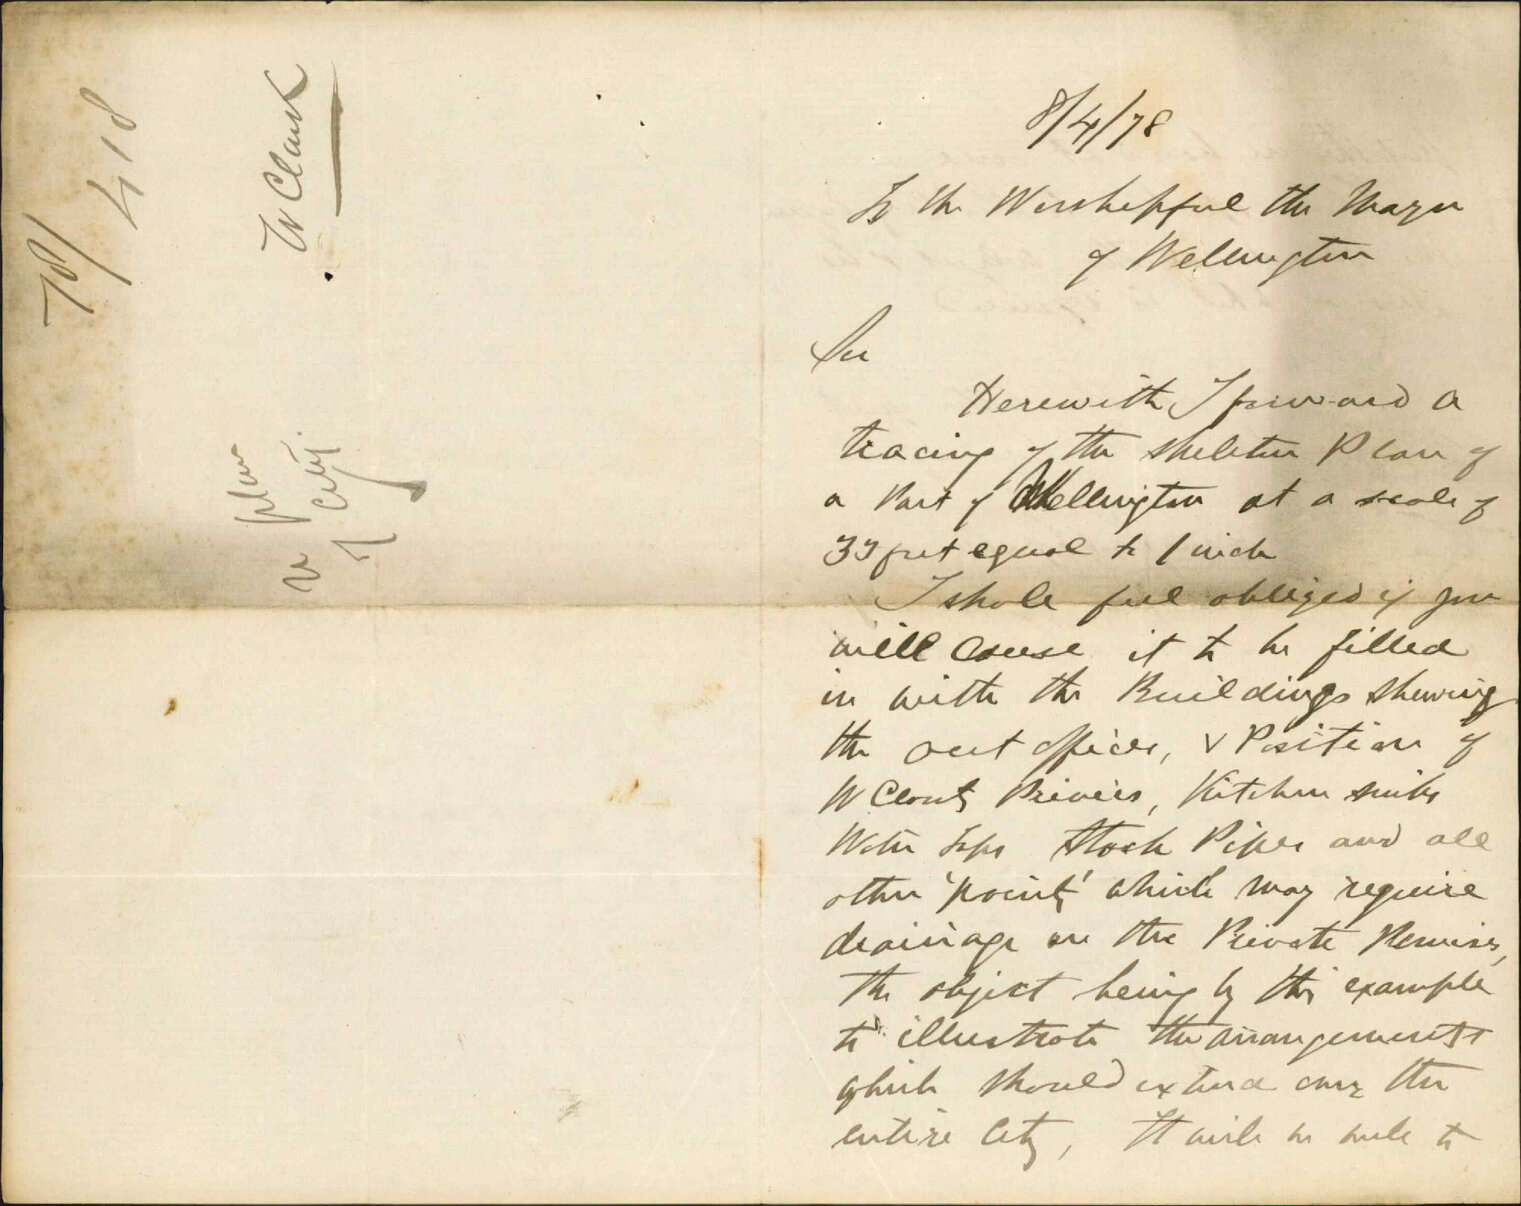 78/418
W Clark
re plan
of City.
8/4/78
To the Worshipful the Mayor
of Wellington
Sir
Herewith I forward a
tracing of the skeleton Plan of
a Part of Wellington at a scale of
33 feet equal to 1 inch
I shale feel obliged if you
will cause it to be filled
in with the Buildings shewing
the out offices, & Position of
W Closets Privies, Kitchen sinks
Water Taps Stack Pipes and all
other 'points' which may require
drainage on the Private Premises,
the object being by this example
to illustrate the arrangements
which should extend over the
entire City, It will be well to